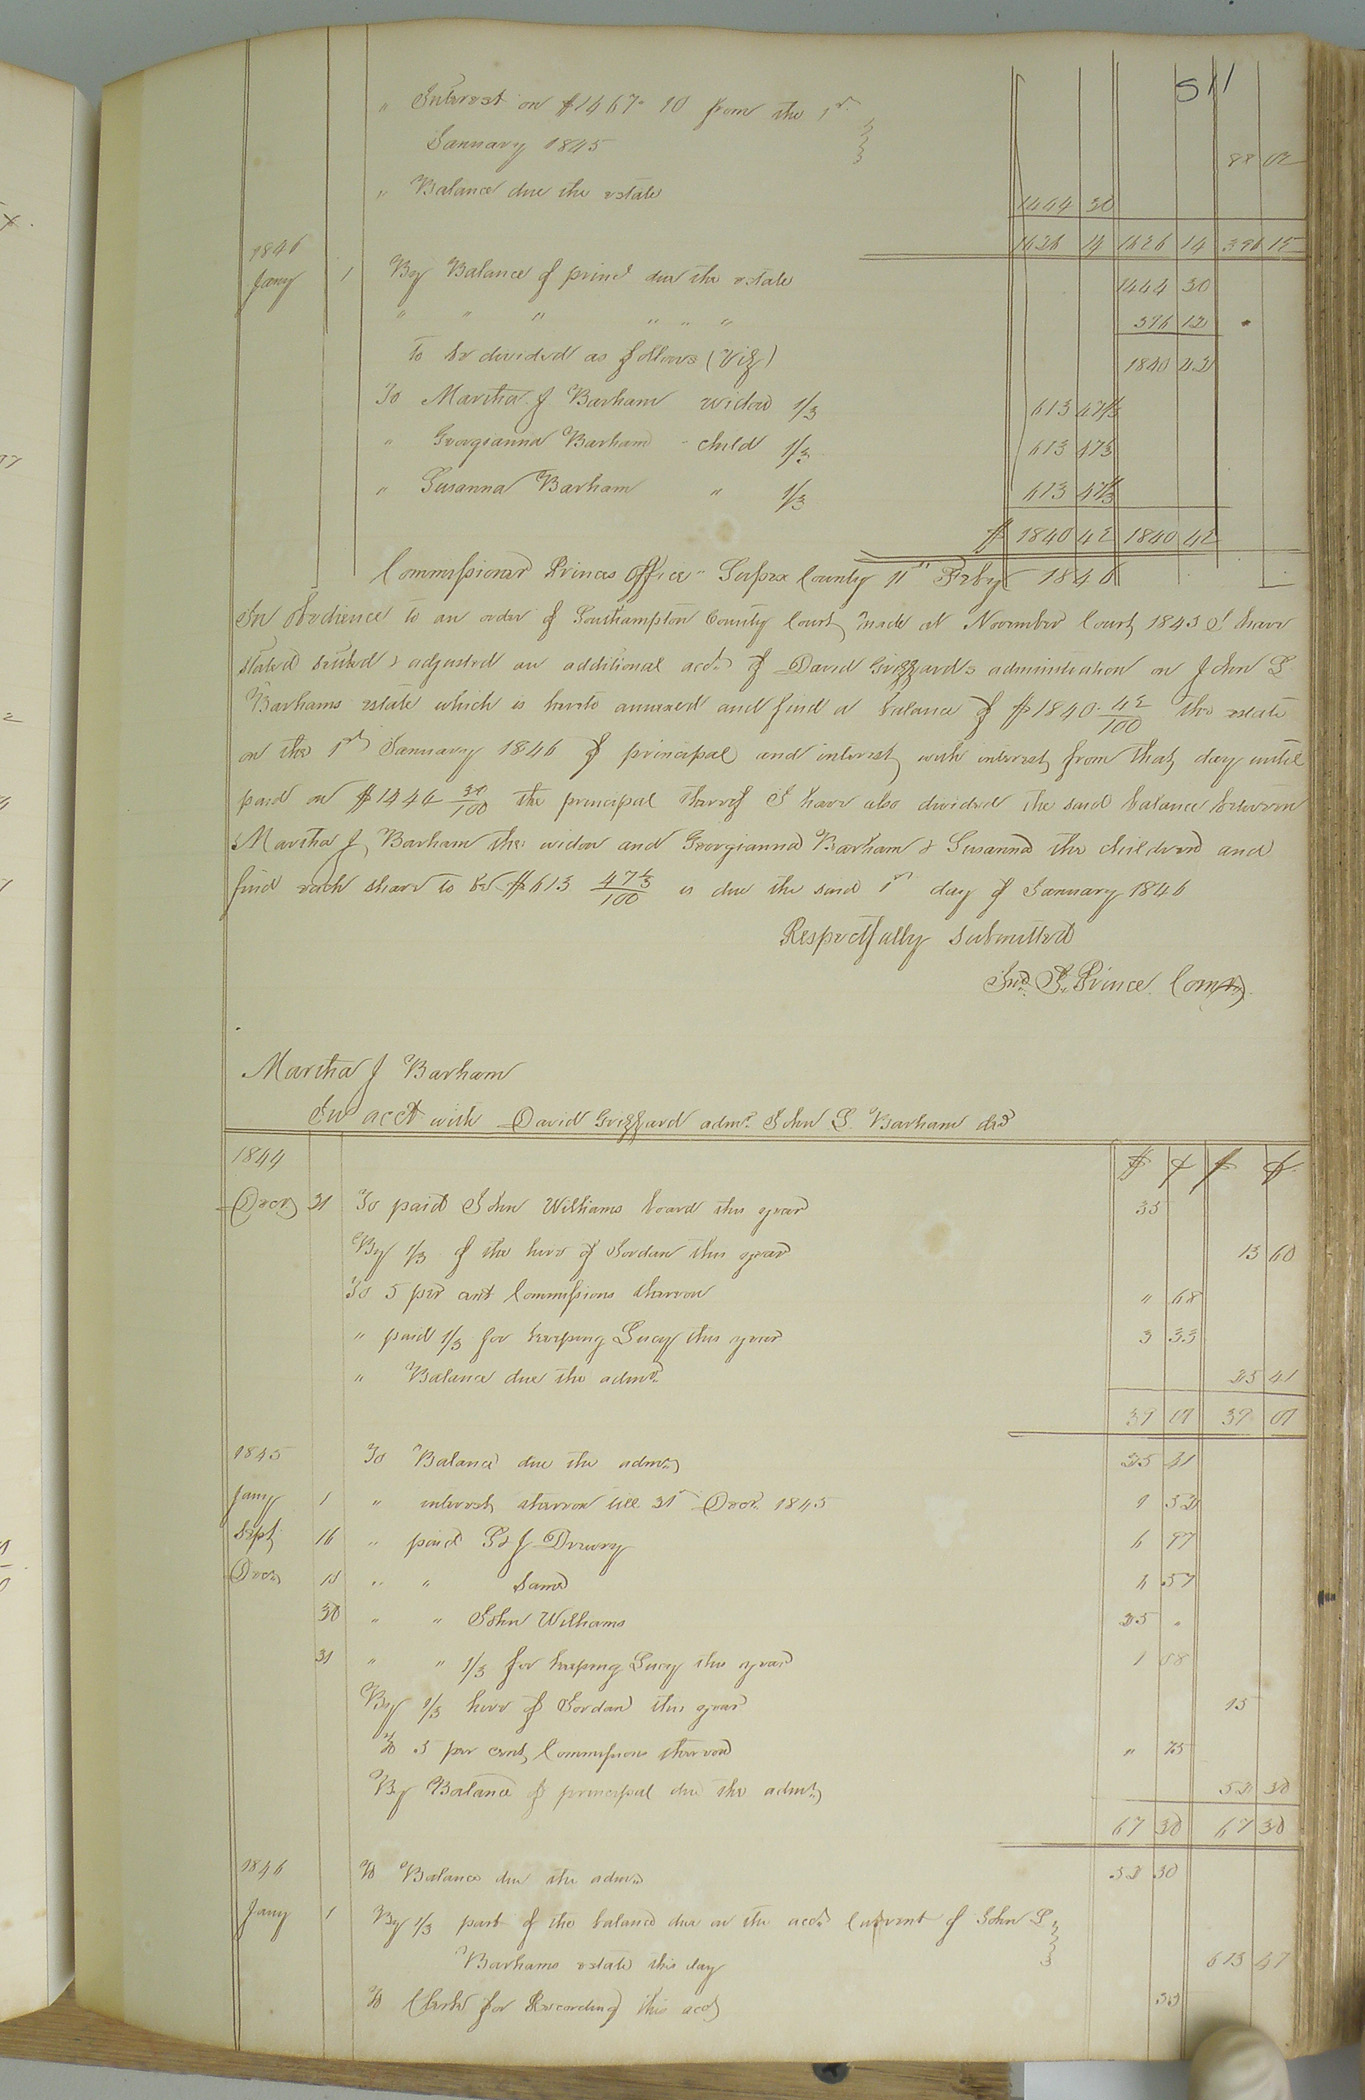 511
" Interest on $1467. 10 from the 1st
January 1845 88 02
" Balance due the estate 1444 30
1626 14 1626 14 396 12
1846
Jany 1 By Balance of princl due the estate 1444 30
" " " " " " 396 12
to be devided as follows (Viz) 1840 42
To Martha J Barham widow 1/3 613 47 1/3
" Georgianna Barham - child 1/3 613 47 1/3
" Susanna Barham " 1/3 613 47 1/3
$ 1840 42 1840 42
Commissioner Princes Office - Sussex County 11th Feby 1846
In obedience to an order of Southampton County Court made at November Court 1845 I have
stated settled & adjusted an additional acct of David Grizzard's administration on John S
Barhams estate which is hereto annexed and find a balance of $1840. 42/100 the estate
on the 1st January 1846 of principal and interest with interest from that day until
paid on $1444 30/100 the principal thereof I have also divided the said balance between
Martha J Barham the widow and Georgianna Barham & Susanna the children and
find each share to be $613 47 1/3/100 is due the said 1st day of January 1846
Respectfully submitted
Jno. Prince Comr.
Martha J Barham
In acct with David Grizzard admr. John S. Barham decd
1844 $ ¢ $ ¢
Decr 31 To paid John Williams board this year 35
By 1/3 of the hire of Jordan this year 13 60
To 5 per cent Commissions thereon " 68
" paid 1/3 for keeping Lucy this year 3 33
" Balance due the admr. 25 41
39 01 39 01
1845 To Balance due the admr. 25 41
Jany 1 " interest thereon till 31 Decr. 1845 1 52
Sept 16 " paid J Drewry 6 97
Decr 13 " " Same 4 57
30 " " John Williams 25 "
31 " " 1/3 for keeping Lucy this year 1 08
By 1/3 hire of Jordan this year 15
To 5 per cent Commissions thereon " 75
By Balance of principal due the admr. 52 30
67 30 67 30
1846 To Balance due the admr. 52 30
Jany 1 By 1/3 part of the balance due on the acct Current of John S
Barhams estate this day 613 47
To Clerk for Recording this acct 33